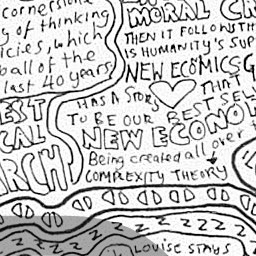 cornerstone
y of thinking
icies, which
ball of the
last 40 years
MORAL CR
THEN IT FOLLOWS TH
IS HUMANITY'S SUP
NEW ECONOMICS G
HAS A STORY THAT
TO BE OUR BEST SEL
NEW ECONO
Being created all over t
COMPLEXITY THEORY
EST
CAL
ARCH
LOUISE STAYS